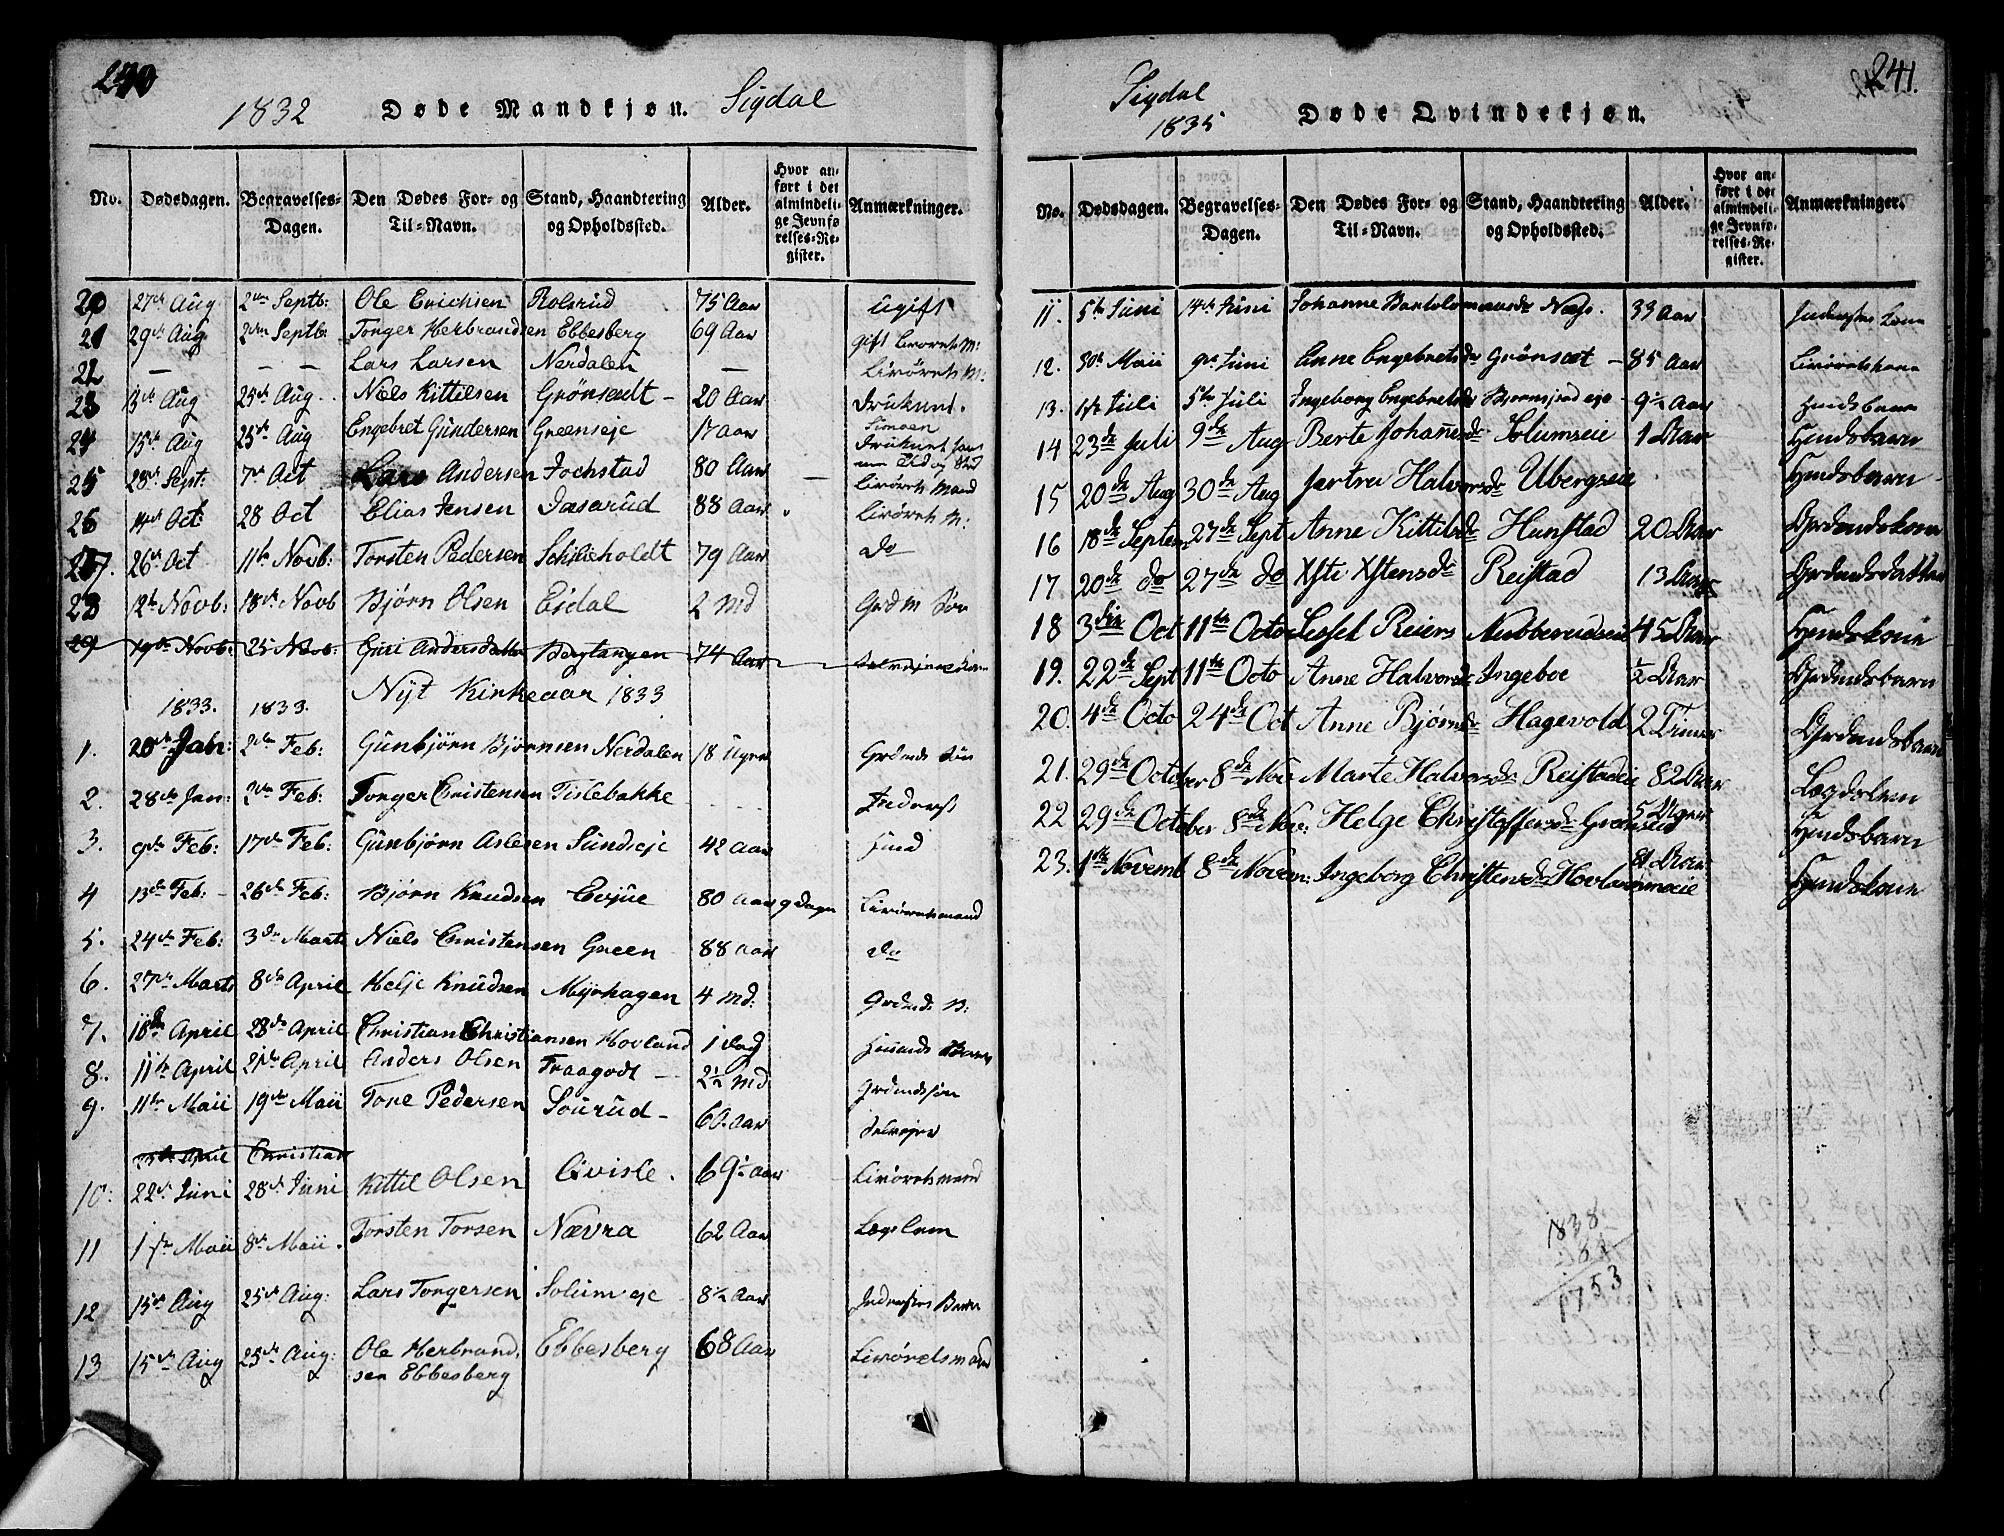 240
1832 Døde Mandkjøn. Sigdal
No. Dødsdagen. Begravelses-Dagen. Den Dødes For- og Til-Navn. Stand, Haandtering og Opholdssted. Alder. Hvor anført i det almindelige Jevnførelses-Register. Anmærkninger.
20 27de Aug 2den Septb: Ole Erichsen Rolsrud 75 Aar ugift
21 29de Aug 2den Septb: Torger Herbrandsen Ebbesberg 69 Aar gift Livørets M:
22 — — — Lars Larsen Nerdalen — Livørets M:
23 15de Aug 25de Aug. Niels Kittilsen Grønsædt — 20 Aar Druknede.
24 15de Aug 25de Aug Engebret Gundersen Greenseje 17 Aar Simoen Druknet
25 28de Sept: 7de Oct Lars Andersen Jochstad 80 Aar — Livørets Mand
26 14de Oct: 28 Oct Elias Jensen Dæsarud 88 Aar Livørets M:
27. 26de Oct 11te Novb: Torsten Pedersen Schieholdt 79 Aar Do
28 12te Novb: 18de Novb Bjørn Olsen Eidal 2 Md Grdm Søn
29 19de Novb: 25 Novb: Guri Andersdatter Bergtangen 74 Aar
Nyt Kirkeaar 1833
1833. 1833.
1. 20de Jan: 2den Feb: Gunbjørn Bjørnsen Nerdalen 18 Uger Grdmds Søn
2. 28de Jan: 2den Feb: Torger Christensen Tislebakke - - - Inderst
3. 9de Feb: 17de Feb: Gunbjørn Aslesen Sundseje 42 Aar Huusmd
4 13de Feb: - 26de Feb: Bjørn Knudsen Evjue 80 Aar 9 Dage Livøretsmand
5. 24de Feb: 3de Marts Niels Christensen Green 88 Aar Do
6. 27de Marts 8de April Helje Knudsen Myrhagen 4 Md: Grdmds B:
7. 18de April 28de April Christian Christiansen Hovland 1 Dag Huusmds Barn
8. 11te April 21de April Anders Olsen Fraagodt — 2½ Md Grdmdssøn
9. 11te Maii 19de Maii Tore Pedersen Sourud — 60. Aar Selvejer
April Christian
10: 22de Juni 28de Juni Kittil Olsen Qvisle. 69½ Aar Livøretsmand
11 1ste Maii 8de Maii. Torsten Torsen Nævra 62 Aar Lægslem
12 15de Aug 25de Aug: Lars Torgersen Solumseje 8½ Aar Inderstes Barn
13 15de Aug 25de Aug: Ole Herbrandsen Ebbesberg Ebbesberg 68 Aar Livøretsmand
241.
Sigdal
1835 Døde Qvindekjøn.
No. Dødsdagen. Begravelses-Dagen. Den Dødes For- og Til-Navn. Stand, Haandtering og Opholdssted. Alder. Hvor anført i det almindelige Jevnførelses-Register. Anmærkninger.
11. 5te Juni 14de Juni Johanne Bartolomæusdr Næss. 33 Aar Inderstes Kone
12. 30te Maii 9de Juni Anne Engebretsdr Grønsæt — 85 Aar Livøretskone
13. 1ste Juli 5te Juli Ingeborg Engebretsdr eje 9½ Aar Hmdsbarn
14 23de Juli 9de Aug Berte Johannesdr Solumseie 1 Aar Hmdsbarn
15 20de Aug 30de Aug Jertru Halvorsdr Ubergseie Hmdsbarn
16 18de Septem 27de Sept Anne Kittilsdr Hunstad 20 Aar Grdmdskone
17 20de do 27de do Xsti Xstensdr Reistad 13 Aar Grdmdsdatter
18 3die Oct 11te Octo Sessel Reiers Nubberudseie 45 Aar Hmdskone
19. 22de Sept 11te Octo Anne Halvorsdr Ingeboe ½ Aar Grdmdsbarn
20. 4de Octo 24de Oct Anne Bjørnsdr Hagevold 2 Timer Grdmdsbarn
21. 29de October 8de Nov Marte Halvorsdr Reistadeie 82 Aar Lægdslem
22 29de October 8de Nov: Helge Christoffersdr Grønseie 5 Uger Hmdsbarn
23. 1ste Novemb 8de Novem: Ingeborg Christensdr Hovlandsmoeie 81 Aar Hmdskone
1838
84
1753